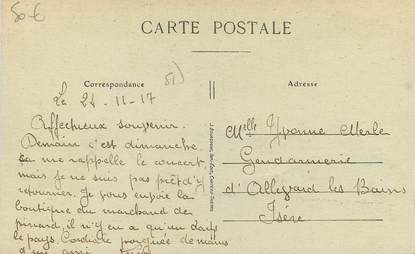 50 €
CARTE POSTALE
Correspondance
51)
Adresse
Le 24-11-17
Affectueux souvenir.
Demain c'est dimanche
ça me rappelle le concert
mais je ne suis pas prêt d'y
retourner. Je vous envoie la
boutique du marchand de
pinard, il n'y en a qu'un dans
le pays. Cordiale poignée de mains
d'un ami
Melle Yvonne Merle
Gendarmerie
d'Allevard les Bains
Isère